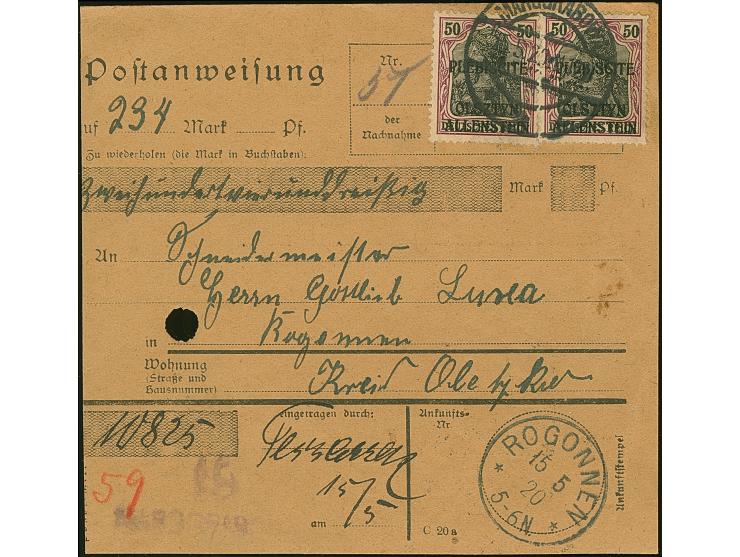 50 50 50 50
PLEBISCITE PLEBISCITE
OLSZTYN OLSZTYN
ALLENSTEIN ALLENSTEIN
Postanweisung
Nr.
57
der
Nachnahme
auf 234 Mark Pf.
Zu wiederholen (die Mark in Buchstaben):
Zweihundertvierunddreißig Mark Pf.
An Schneidermeister
Herrn Gottlieb
in Rogonnen
Wohnung
(Straße und
Hausnummer)
Kreis Oletzko
10825
eingetragen durch:
Ankunfts-
Nr.
15/5
59
15
am
C 20a
ROGONNEN
15 5
20
* 5-6N *
Ankunftsstempel